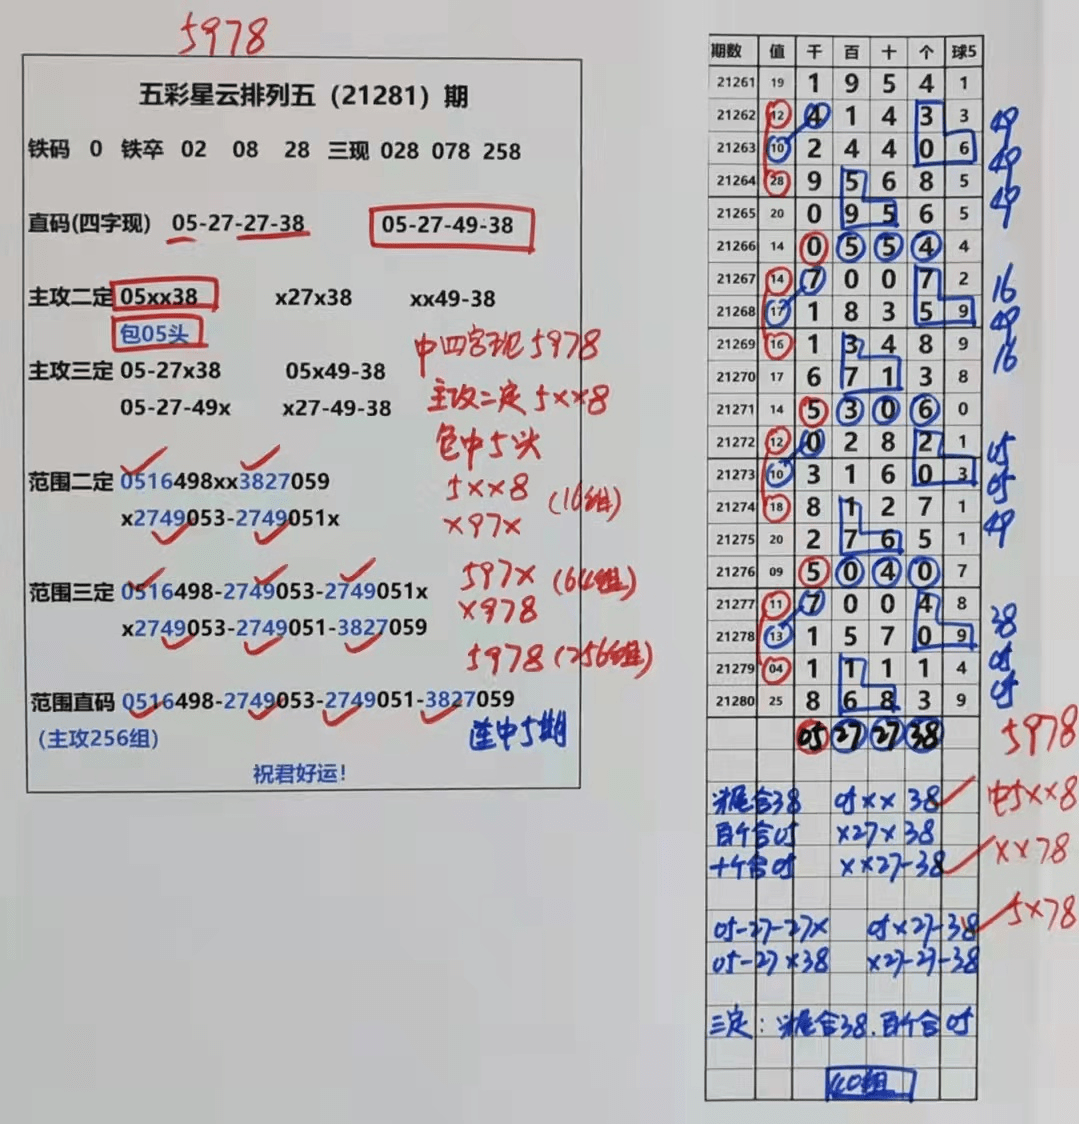 5978
五彩星云排列五（21281）期
铁码 0 铁卒 02 08 28 三现 028 078 258
直码(四字现) 05-27-27-38 05-27-49-38
主攻二定 05xx38 x27x38 xx49-38
包05头
主攻三定 05-27x38 05x49-38
05-27-49x x27-49-38
范围二定 0516498xx3827059
x2749053-2749051x
范围三定 0516498-2749053-2749051x
x2749053-2749051-3827059
范围直码 0516498-2749053-2749051-3827059
(主攻256组)
祝君好运!
中四字现5978
主攻二定5xx8
包中5头
5xx8 (16组)
x97x
597x (64组)
x978
5978 (256组)
连中5期
期数 值 千 百 十 个 球5
21261 19 1 9 5 4 1
21262 12 4 1 4 3 3
21263 10 2 4 4 0 6
21264 28 9 5 6 8 5
21265 20 0 9 5 6 5
21266 14 0 5 5 4 4
21267 14 7 0 0 7 2
21268 17 1 8 3 5 9
21269 16 1 3 4 8 9
21270 17 6 7 1 3 8
21271 14 5 3 0 6 0
21272 12 0 2 8 2 1
21273 10 3 1 6 0 3
21274 18 8 1 2 7 1
21275 20 2 7 6 5 1
21276 09 5 0 4 0 7
21277 11 7 0 0 4 8
21278 13 1 5 7 0 9
21279 04 1 1 1 1 4
21280 25 8 6 8 3 9
05 27 27 38
49
49
49
16
49
16
05
05
49
38
05
05
5978
头尾合38 05xx38 中5xx8
百个合05 x27x38
十个合05 xx27-38 xx78
05-27-27x 05x27-38 5x78
05-27x38 x27-27-38
三定：头尾合38.百个合05
40组